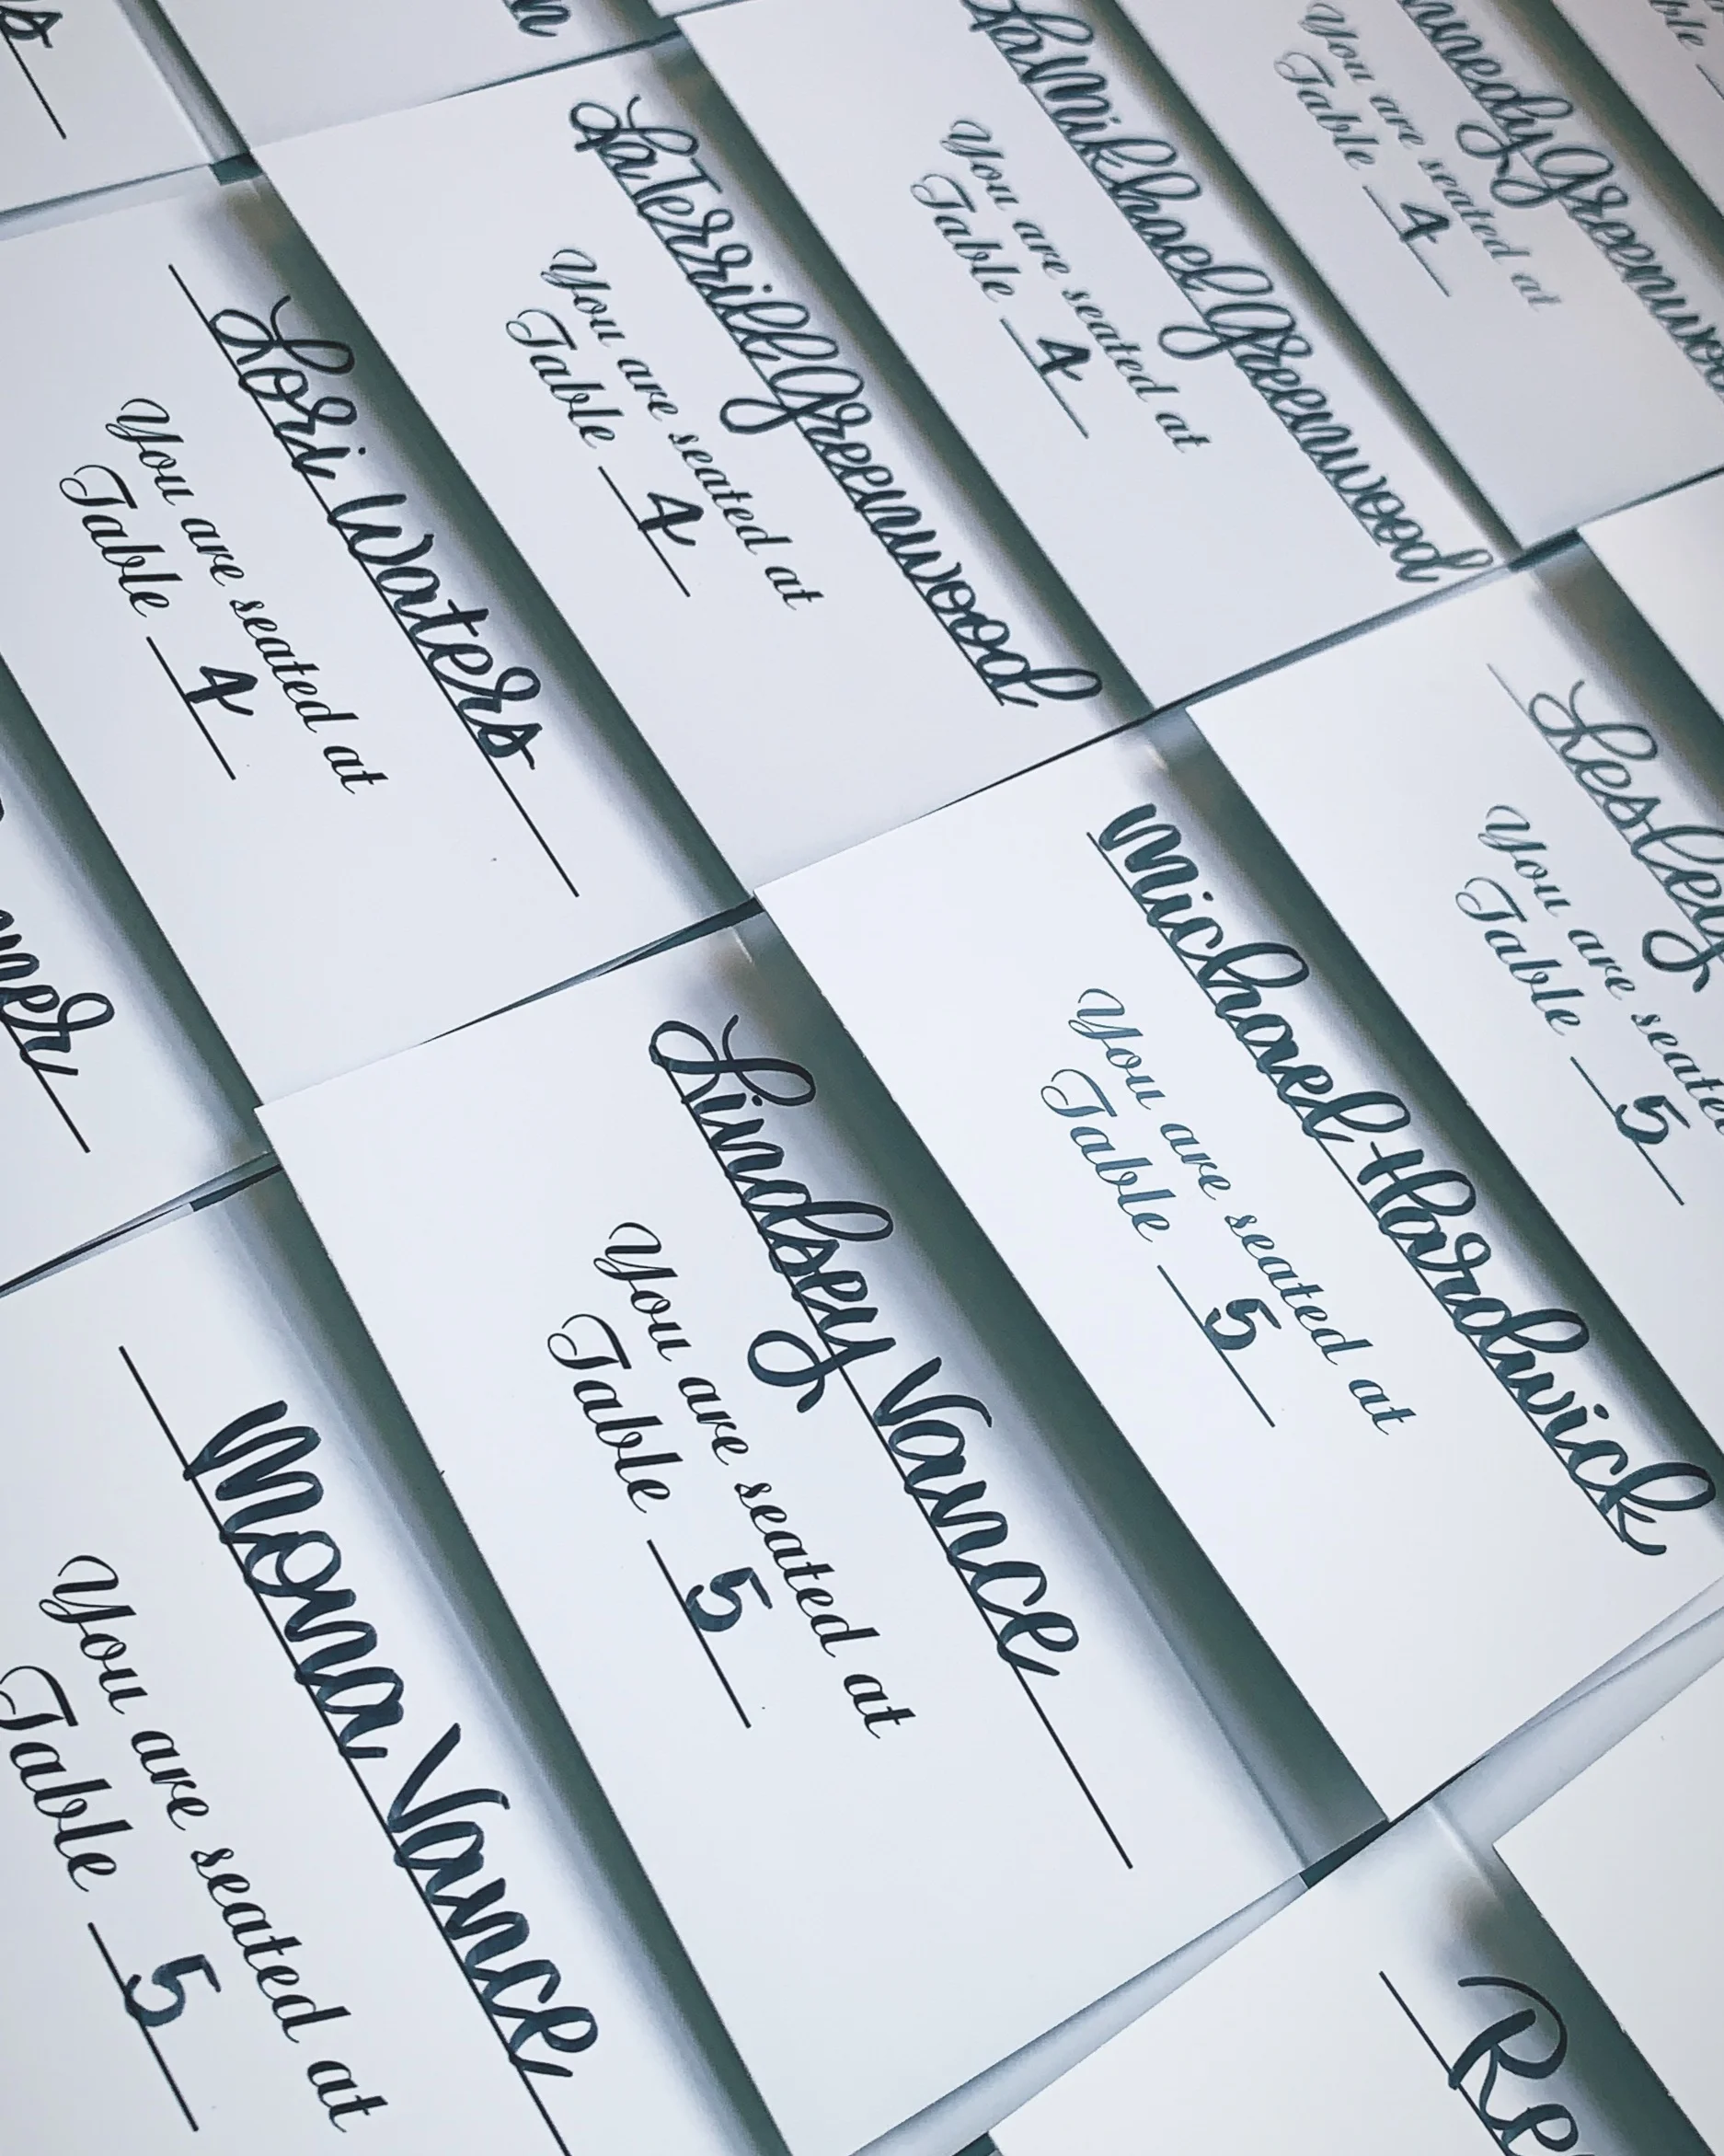 LaMikhael Greenwood
You are seated at
Table 4
You are seated at
Table 4
LaTerrill Greenwood
You are seated at
Table 4
Lori Waters
You are seated at
Table 4
Lesley
You are seated
Table 5
Michael Hardwick
You are seated at
Table 5
Lindsey Vance
You are seated at
Table 5
Mona Vance
You are seated at
Table 5